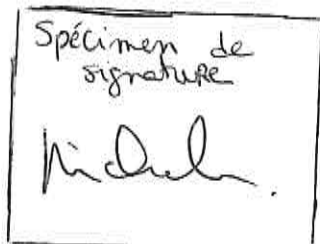 Spécimen de
signature